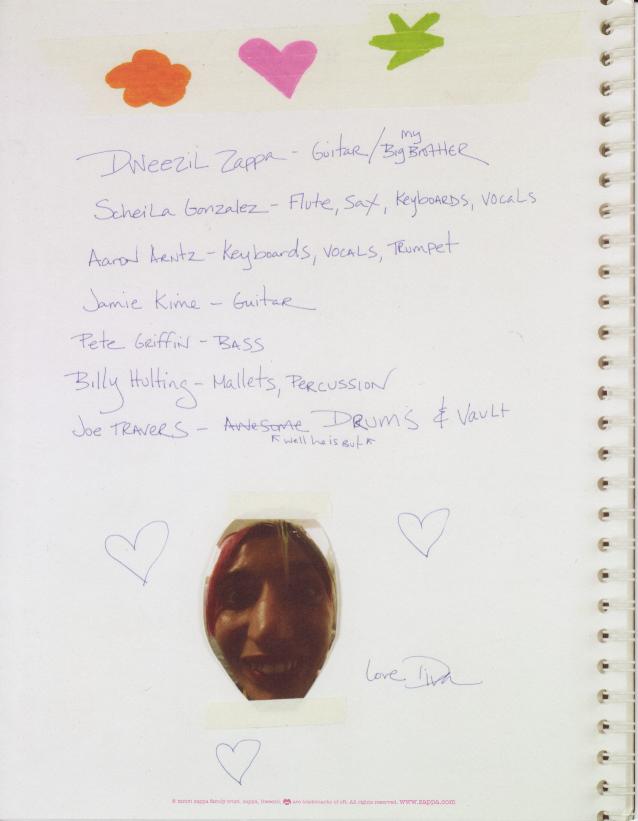 my
Dweezil Zappa - Guitar/Big Brother
Scheila Gonzalez - Flute, Sax, Keyboards, vocals
Aaron Arntz - Keyboards, vocals, Trumpet
Jamie Kime - Guitar
Pete Griffin - Bass
Billy Hulting - Mallets, Percussion
Joe Travers - Awesome Drums & Vault
↖ well he is But ↖
Love, Diva
zappa family trust. zappa, are trademarks of zft. All rights reserved. www.zappa.com